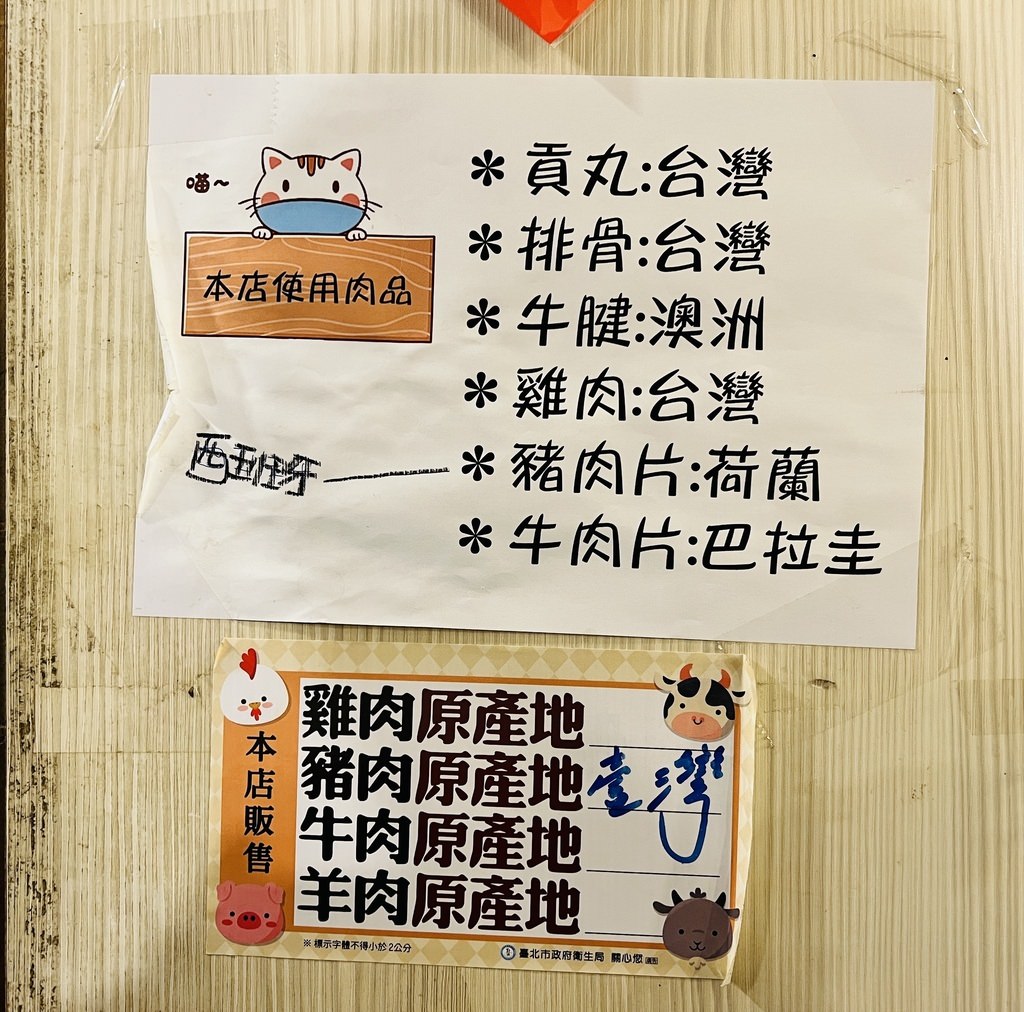 喵~
本店使用肉品
* 貢丸:台灣
* 排骨:台灣
* 牛腱:澳洲
* 雞肉:台灣
西班牙
* 豬肉片:荷蘭
* 牛肉片:巴拉圭
本店販售
雞肉原產地
豬肉原產地臺灣
牛肉原產地
羊肉原產地
※ 標示字體不得小於2公分
臺北市政府衛生局 關心您